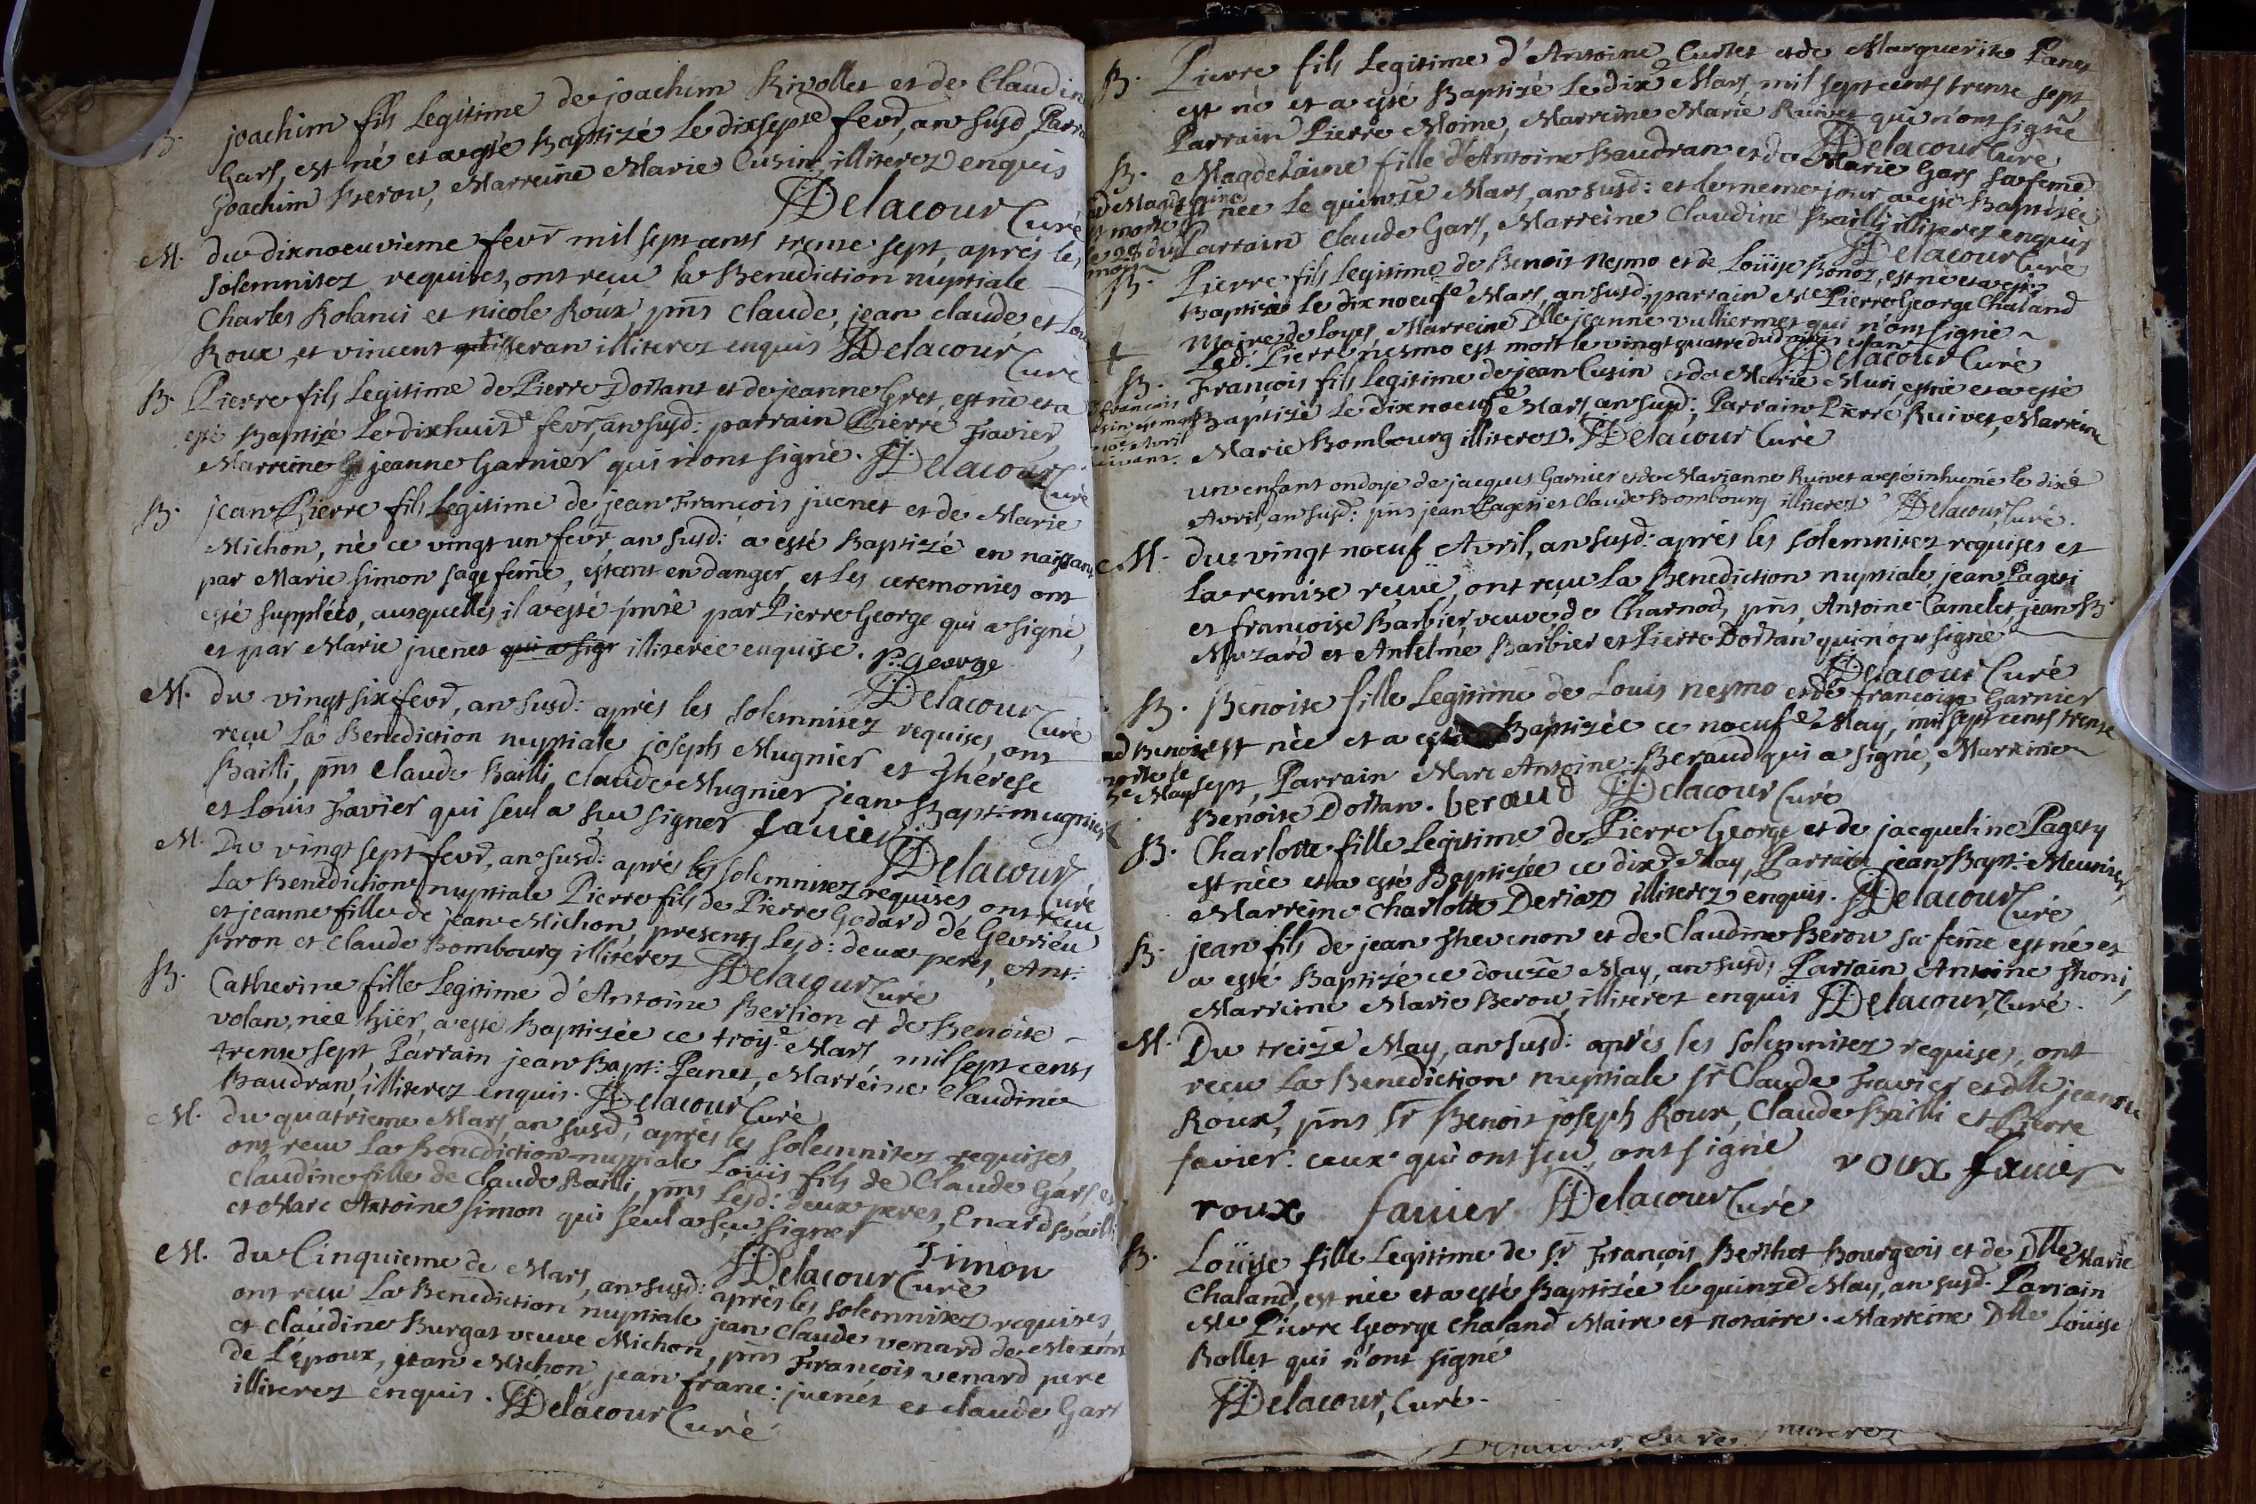 B. joachim fils Legitime de joachim Rivollet et de Claudine
Gars, est né et a esté Baptizé Le dixsepte fevr, an susd, Parrain
joachim Berou, Marreine Marie Cusin, illiterez enquis
Delacour Curé
M. du dixnoeuvieme fevr mil sept cents trente sept, aprés les
solemnitez requises, ont reçu la Benediction nuptiale
Charles Rolanci et nicole Roux pnts Claude, jean claude et Louis
Roux et vincent tisseran illiterez enquis Delacour
Curé
B. Pierre fils Legitime de Pierre Dortant et de jeanne Gret, est né et a
esté Baptizé Le dixhuite fevr, an susd: parrain Pierre Favier,
Marreine jeanne Garnier qui n'ont signé. Delacour
Curé
B. jean Pierre fils Legitime de jean François juenet et de Marie
Michon, né ce vingt un fevr, an susd: a esté Baptizé en naissant
par Marie simon sage feme, estant en danger, et Les ceremonies ont
esté supplées, ausquelles il a esté pnté par Pierre George qui a signé,
et par Marie juenet qui a sign illiterée enquise. p. George
Delacour Curé
M. du vingt six fevr, an susd: aprés les solemnitez requises, ont
reçu La Benediction nuptiale joseph Mugnier et Therese
Bailli, pnts Claude Bailli, Claude Mugnier, jean Bapt: mugnier
et Louis Favier qui seul a sçu signer favier
Delacour Curé
M. Du vingt sept fevr, an susd: aprés les solemnitez requises ont reçu
La Benediction nuptiale Pierre fils de Pierre Godard de Gevrieu
et jeanne fille de jean Michon, presents Lesd: deux peres, Ant:
siron et Claude Bombourg illiterez Delacour Curé
B. Catherine fille Legitime d'Antoine Berlion et de Benoite
volan, née hyër, a esté Baptizée ce troise Mars, mil sept cents
trente sept Parrain jean Bapt: Panet, Marreine Claudine
Baudran, illiterez enquis. Delacour Curé
M. du quatrieme Mars, an susd, aprés les solemnitez requises,
ont reçu La Benediction nuptiale Louis fils de Claude Gars et
Claudine fille de Claude Bailli, pnts Lesd: deux peres, Enard Bailli
et Marc Antoine simon qui seul a sçu signer
Delacour Curé Simon
M. du Cinquieme de Mars, an susd: aprés les solemnitez requises
ont reçu La Benediction nuptiale jean Claude venard de Meximi
et Claudine Burgat veuve Michon, pnts François venard pere
de L'époux, jean Michon, jean franc: juenet et Claude Gars
illiterez enquis. Delacour Curé
B. Pierre fils Legitime d'Antoine Curtet et de Marguerite Panet
est né et a esté Baptizé Le dix Mars, mil sept cents trente sept
Parrain Pierre Moine, Marreine Marie Ruivet qui n'ont signé
Delacour Curé
B. Magdelaine fille d'Antoine Baudran et de Marie Gars sa feme
est née Le quinze Mars, an susd: et le meme jour a esté Baptizée
Parrain Claude Gars, Marreine Claudine Bailli illiterez enquis
Delacour Curé
B. Pierre fils Legitime de Benoit nesmo et de Loüise Bonoz, est né et a esté
Baptizé Le dix noeufe Mars, an susd, parrain Me Pierre George Chaland
Maire de loyes, Marreine Dlle jeanne vulliermet qui n'ont signé
Led: Pierre nesmo est mort le vingt quatre dud mois et an
Delacour Curé
B. François fils Legitime de jean Cusin et de Marie Muri, est né et a esté
Baptizé Le dix noeufe Mars, an susd: Parrain Pierre Ruivet, Marreine
Marie Bombourg illiterez. Delacour Curé
un enfant ondoyé de jacques Garnier et de Marianne Ruivet a esté inhumé le dixe
Avril, an susd: pnts jean Pageti et Claude Bombourg illiterez Delacour, Curé.
M. du vingt noeuf Avril, an susd: aprés les solemnitez requises et
La remise reçuë, ont reçu La Benediction nuptiale jean Pageti
et françoise Barbier, veuve de Charnod, pnts, Antoine Camelet, jean B.
Mozard et Antelme Barbier et Pierre Dortan qui n'ont signé
Delacour Curé
B. Benoite fille Legitime de Louis nesmo et de françoise Garnier
est née et a esté Baptizée ce noeufe May, mil sept cents trente
sept, Parrain Marc Antoine Beraud qui a signé, Marreine
Benoite Dortan. beraud Delacour Curé
B. Charlotte fille Legitime de Pierre George et de jacqueline Pagety
est née et a esté Baptizée ce dixe May, Parrain jean Bapt: Meunier,
Marreine Charlotte Deriaz illiterez enquis. Delacour Curé
B. jean fils de jean Thevenon et de Claudine Berou sa feme est né et
a esté Baptizé ce douze May, an susd, Parrain Antoine Thoni,
Marreine Marie Berou, illiterez enquis Delacour, Curé.
M. Du treize May, an susd: aprés les solemnitez requises, ont
reçu La Benediction nuptiale Sr Claude Favier et dlle jeanne
Roux, pnts Sr Benoit joseph Roux, Claude Bailli et Pierre
favier. ceux qui ont sçu, ont signé roux favier
roux favier Delacour Curé
B. Loüise fille Legitime de Sr François Berthet Bourgeois et de Dlle Marie
Chaland, est née et a esté Baptizée le quinze May, an susd. Parrain
Me Pierre George Chaland Maire et notaire. Marreine Dlle Loüise
Rollet qui n'ont signé
Delacour, Curé.